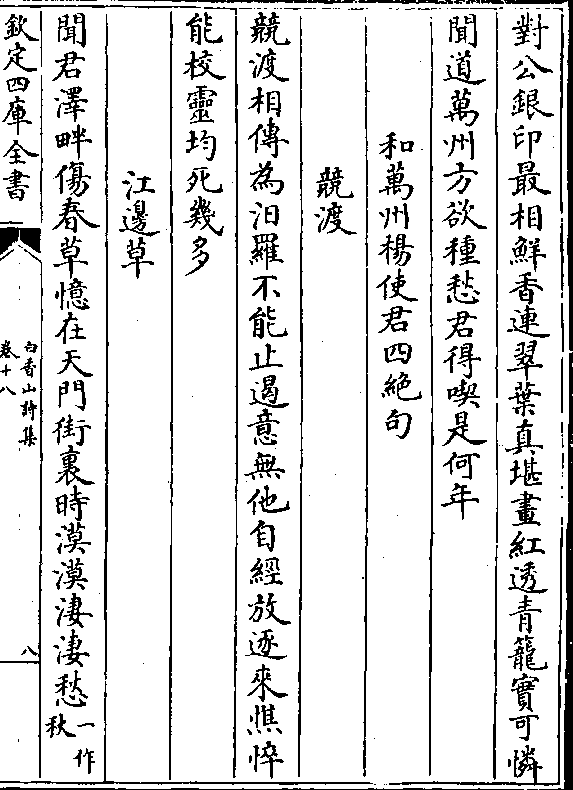 對公銀印最相鮮香連翠葉真堪畫紅透青籠實可憐
聞道萬州方欲種愁君得喫是何年
和萬州楊使君四絶句
競渡
競渡相傳為汨羅不能止遏意無他自經放逐來憔悴
能校靈均死幾多
江邊草
聞君澤畔傷春草憶在天門街裏時漠漠淒淒愁一作秋
欽定四庫全書
白香山詩集
卷十八
八